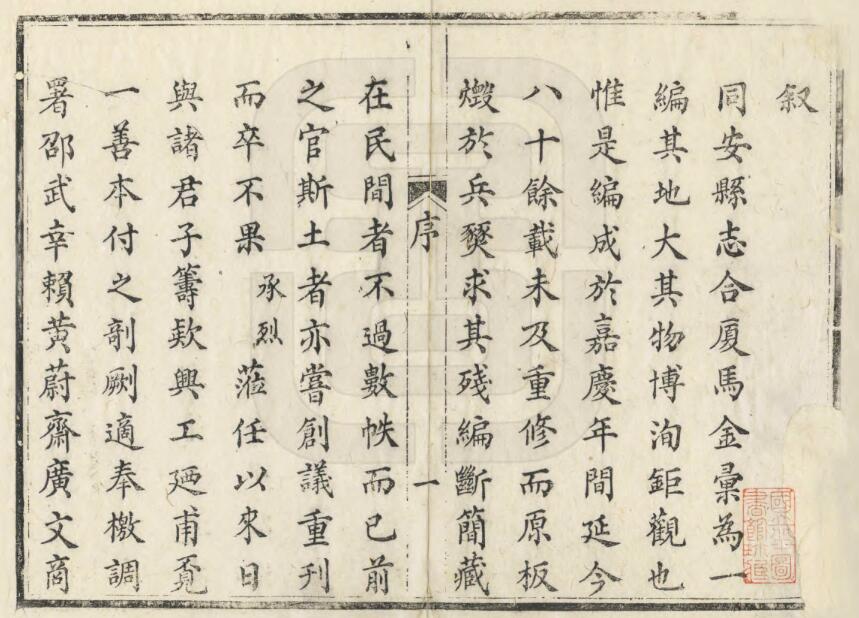 叙
同安縣志合厦馬金彙為一
編其地大其物博洵鉅觀也
惟是編成於嘉慶年間延今
八十餘載未及重修而原板
燬於兵燹求其残編斷簡藏
序 一
在民間者不過數帙而已前
之官斯土者亦嘗創議重刊
而卒不果承烈蒞任以來日
與諸君子籌欵興工廼甫覔
一善本付之剞劂適奉檄調
署邵武幸賴黃蔚齋廣文商